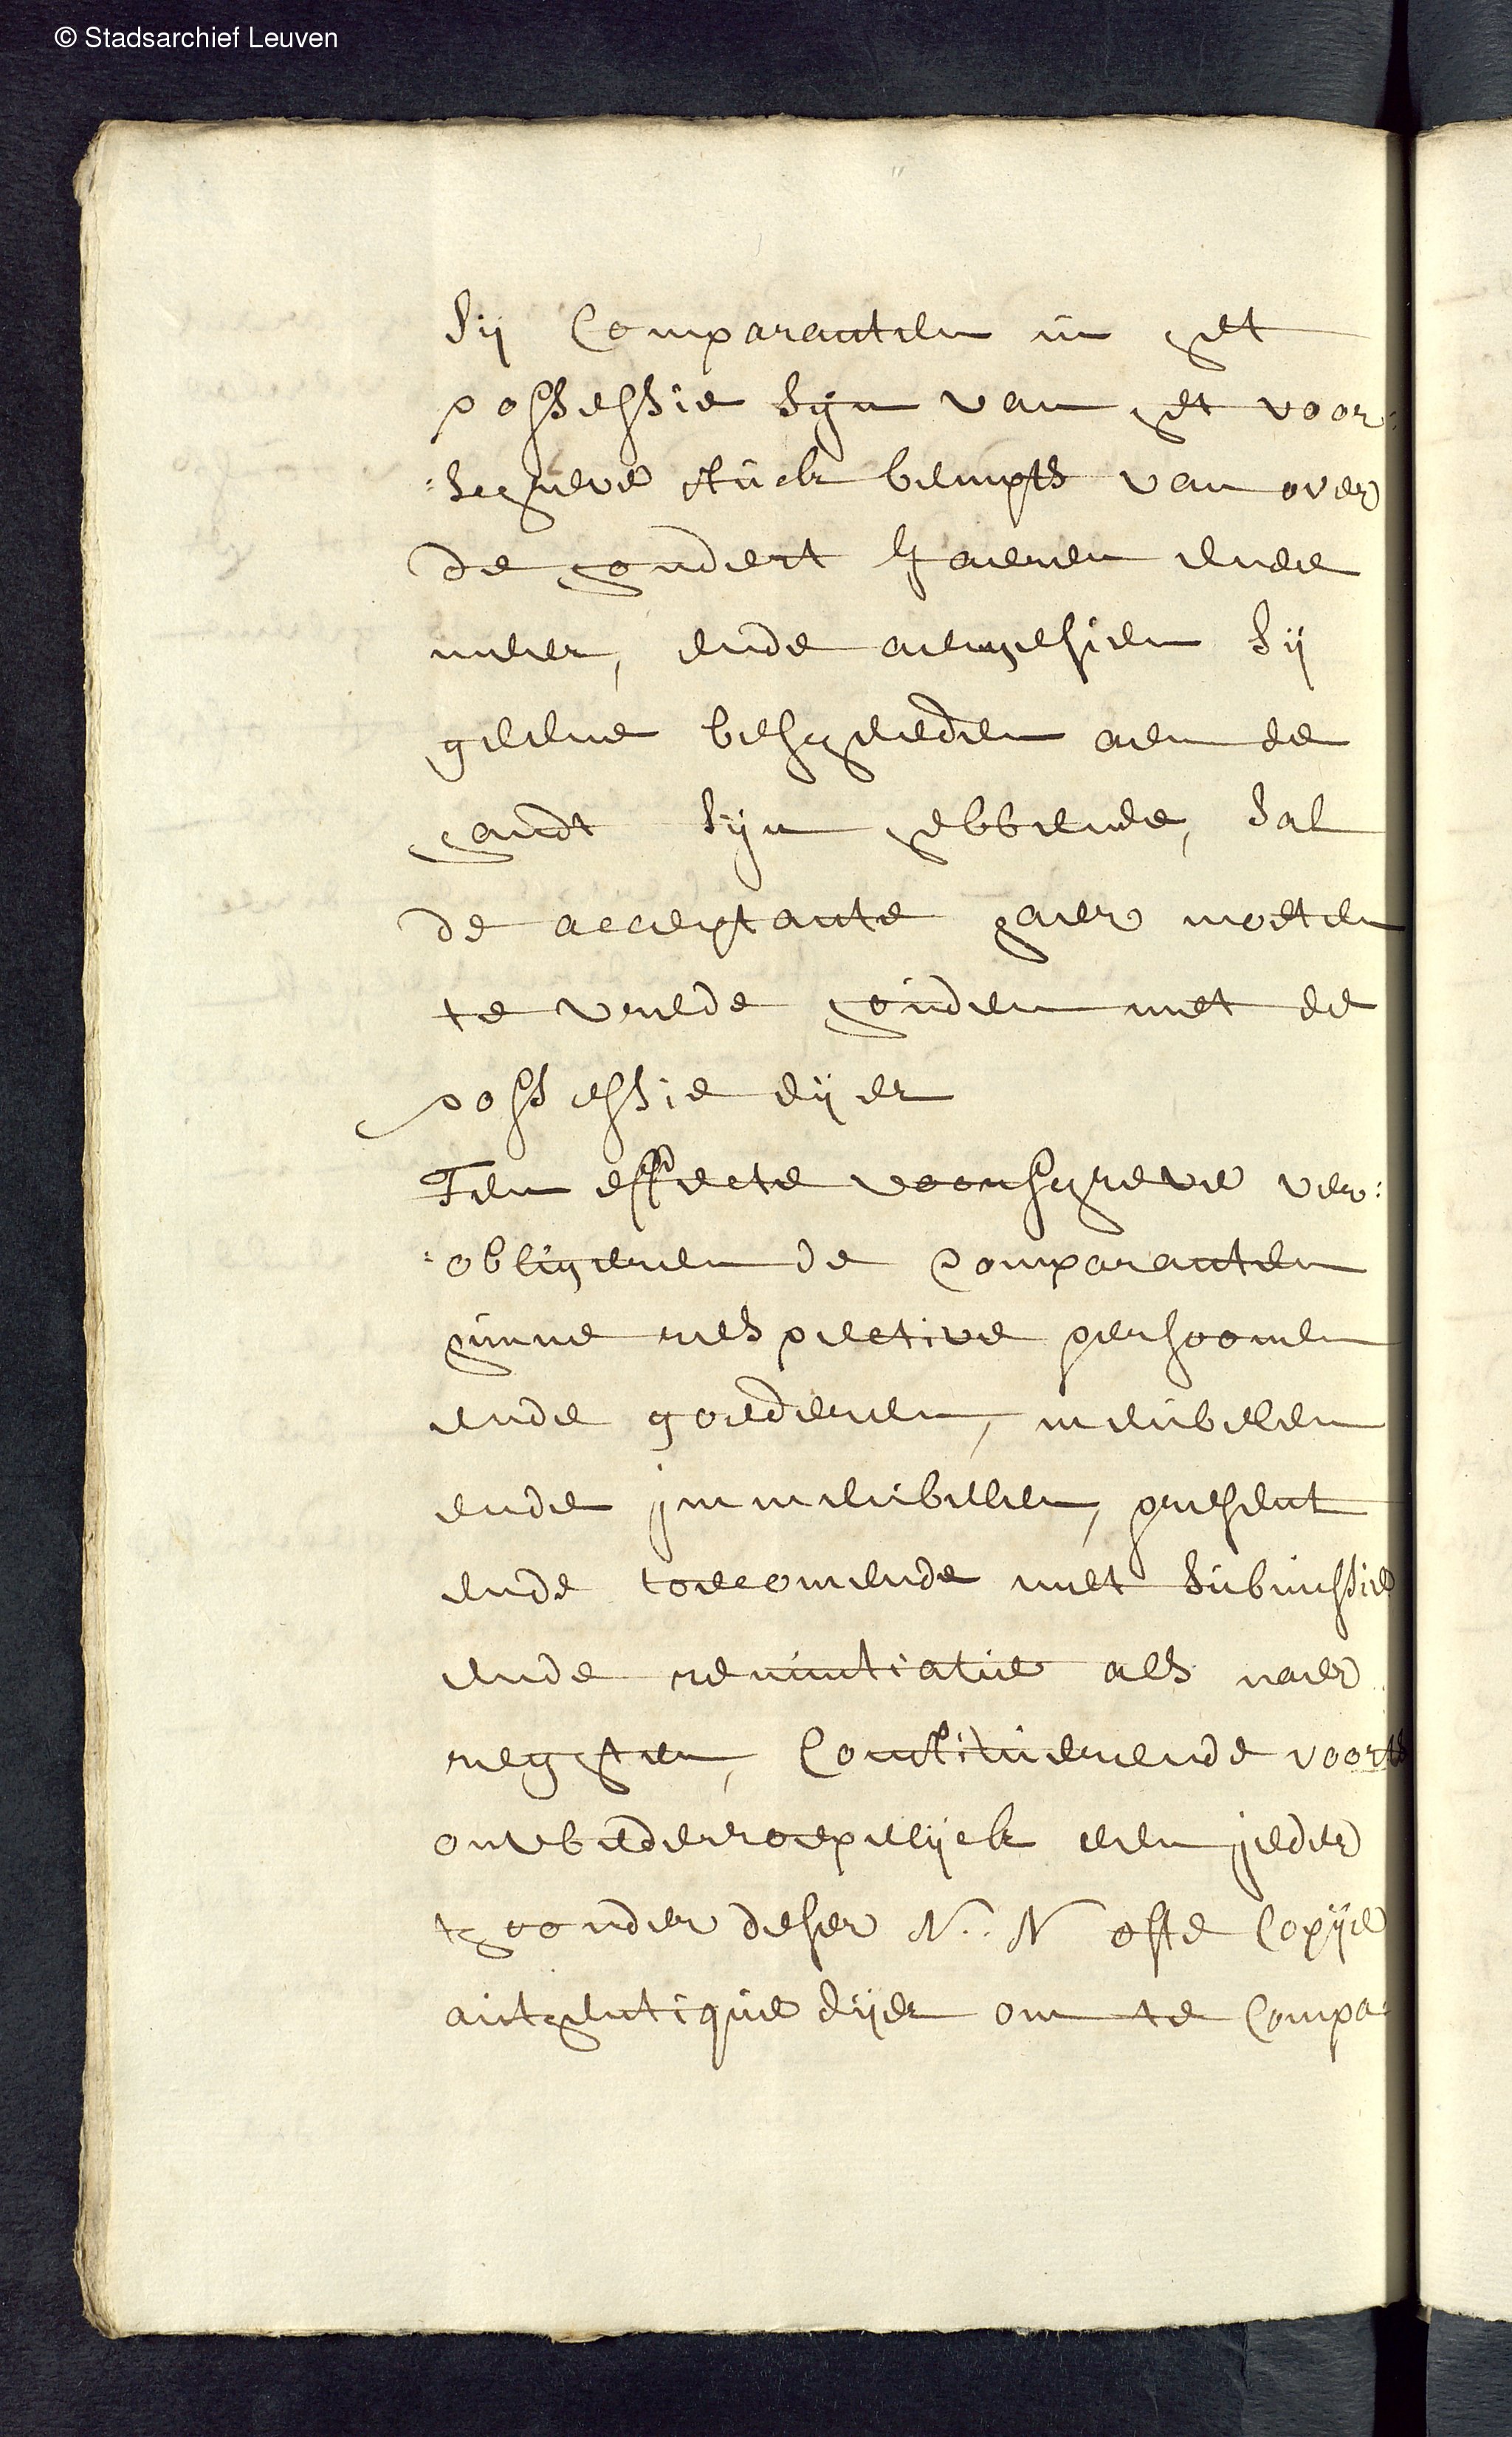 © Stadsarchief Leuven
sij Comparanten in het
possessie sijn van het voor:
:schreve stuck bempts van over
de hondert Jaeren ende
meer, ende aengesien sij
geene bescheeden aen de
handt sijn hebbende, sal
de acceptante haer moeten
te vrede houden met de
possessie dijer
Ten effecte voorschreve ver:
:obligeren de Comparanten
hunne respective persoonen
ende goederen, meubelen
ende jmmeubelen, present
ende toecomende met submissie
ende renuntiatie als naer
rechten, Constituerende voorts
onwederroepelijck een jeder
thoonder deser N: N ofte Copije
authentique dijer om te Compa: